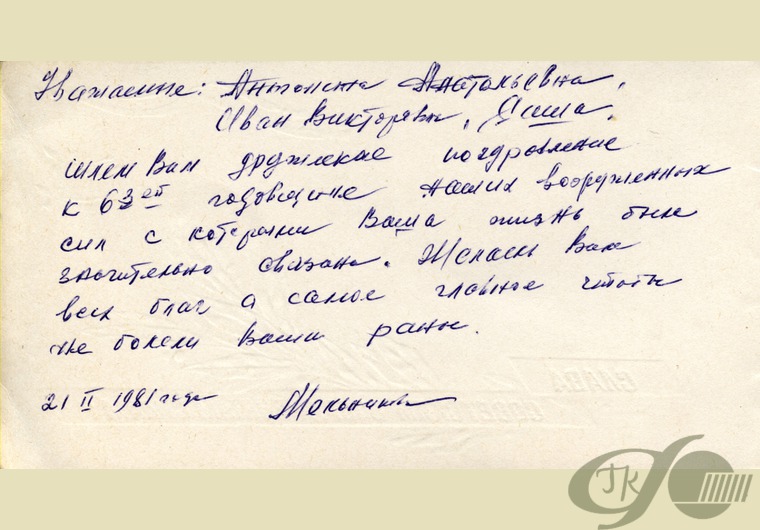 Уважаемые: Антонина Анатольевна,
Иван Викторович, Яша.
Шлем Вам дружеские поздравление
к 63ей годовщине наших вооруженных
сил с которыми Ваша жизнь была
значительно связана. Желаем Вам
всех благ а самое главное чтобы
не болели Ваши раны.
21 II 1981 года
СЛАВА
ГК